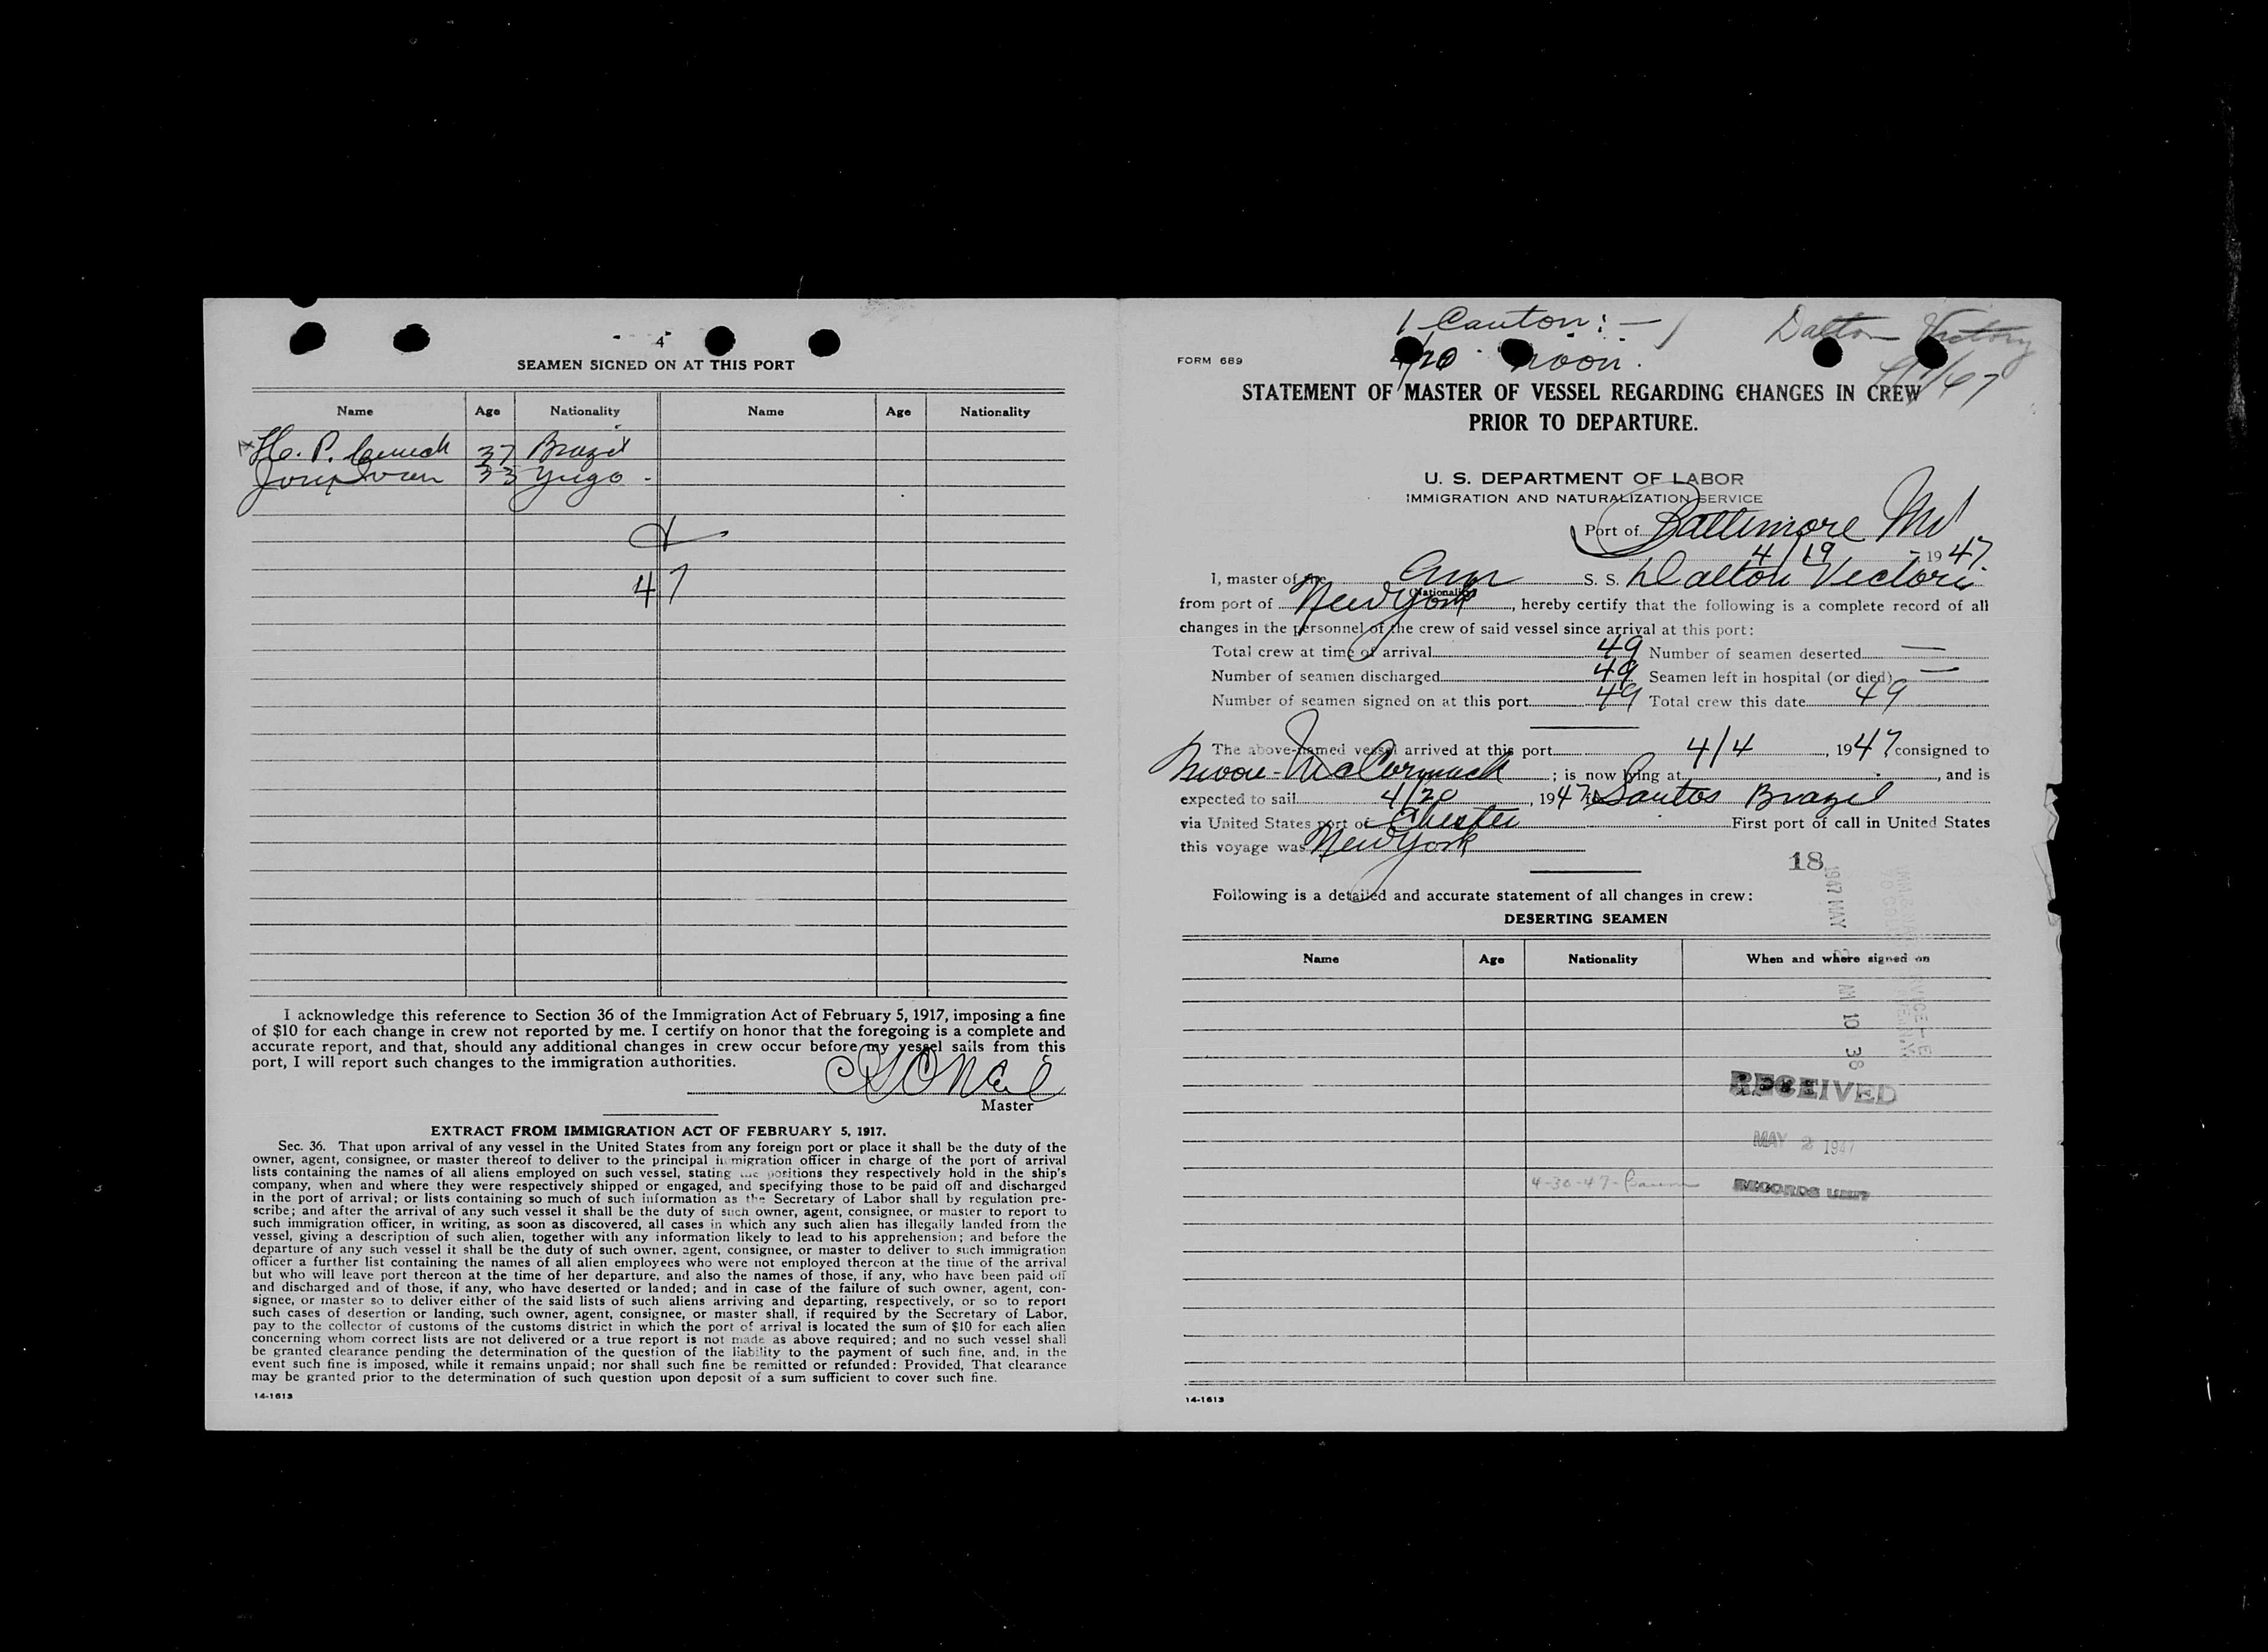 4
SEAMEN SIGNED ON AT THIS PORT
Name Age Nationality Name Age Nationality
H. P. 37 Brazil
Josip Ivan 33 Yugo -
47
I acknowledge this reference to Section 36 of the Immigration Act of February 5, 1917, imposing a fine
of $10 for each change in crew not reported by me. I certify on honor that the foregoing is a complete and
accurate report, and that, should any additional changes in crew occur before my vessel sails from this
port, I will report such changes to the immigration authorities.
Master
EXTRACT FROM IMMIGRATION ACT OF FEBRUARY 5, 1917.
Sec. 36. That upon arrival of any vessel in the United States from any foreign port or place it shall be the duty of the
owner, agent, consignee, or master thereof to deliver to the principal immigration officer in charge of the port of arrival
lists containing the names of all aliens employed on such vessel, stating the positions they respectively hold in the ship's
company, when and where they were respectively shipped or engaged, and specifying those to be paid off and discharged
in the port of arrival; or lists containing so much of such information as the Secretary of Labor shall by regulation pre-
scribe; and after the arrival of any such vessel it shall be the duty of such owner, agent, consignee, or master to report to
such immigration officer, in writing, as soon as discovered, all cases in which any such alien has illegally landed from the
vessel, giving a description of such alien, together with any information likely to lead to his apprehension; and before the
departure of any such vessel it shall be the duty of such owner, agent, consignee, or master to deliver to such immigration
officer a further list containing the names of all alien employees who were not employed thereon at the time of the arrival
but who will leave port thereon at the time of her departure, and also the names of those, if any, who have been paid off
and discharged and of those, if any, who have deserted or landed; and in case of the failure of such owner, agent, con-
signee, or master so to deliver either of the said lists of such aliens arriving and departing, respectively, or so to report
such cases of desertion or landing, such owner, agent, consignee, or master shall, if required by the Secretary of Labor,
pay to the collector of customs of the customs district in which the port of arrival is located the sum of $10 for each alien
concerning whom correct lists are not delivered or a true report is not made as above required; and no such vessel shall
be granted clearance pending the determination of the question of the liability to the payment of such fine, and, in the
event such fine is imposed, while it remains unpaid; nor shall such fine be remitted or refunded: Provided, That clearance
may be granted prior to the determination of such question upon deposit of a sum sufficient to cover such fine.
14-1613
1 Canton: - Dalton Victory
FORM 689 4/20 noon.
STATEMENT OF MASTER OF VESSEL REGARDING CHANGES IN CREW
PRIOR TO DEPARTURE.
U. S. DEPARTMENT OF LABOR
IMMIGRATION AND NATURALIZATION SERVICE
Port of Baltimore Md
4/19 - 1947.
I, master of the Am S. S. Dalton Victory
(Nationality)
from port of New York, hereby certify that the following is a complete record of all
changes in the personnel of the crew of said vessel since arrival at this port:
Total crew at time of arrival 49 Number of seamen deserted —
Number of seamen discharged 49 Seamen left in hospital (or died) —
Number of seamen signed on at this port 49 Total crew this date 49
The above-named vessel arrived at this port 4/4, 1947 consigned to
Moore-McCormack; is now lying at , and is
expected to sail 4/20, 1947 to Santos Brazil
via United States port of Chester First port of call in United States
this voyage was New York
18
Following is a detailed and accurate statement of all changes in crew:
DESERTING SEAMEN
Name Age Nationality When and where signed on
1947 MAY 2 AM 10 38
RECEIVED
MAY 2 1947
4-30-47-
RECORDS UNIT
14-1613